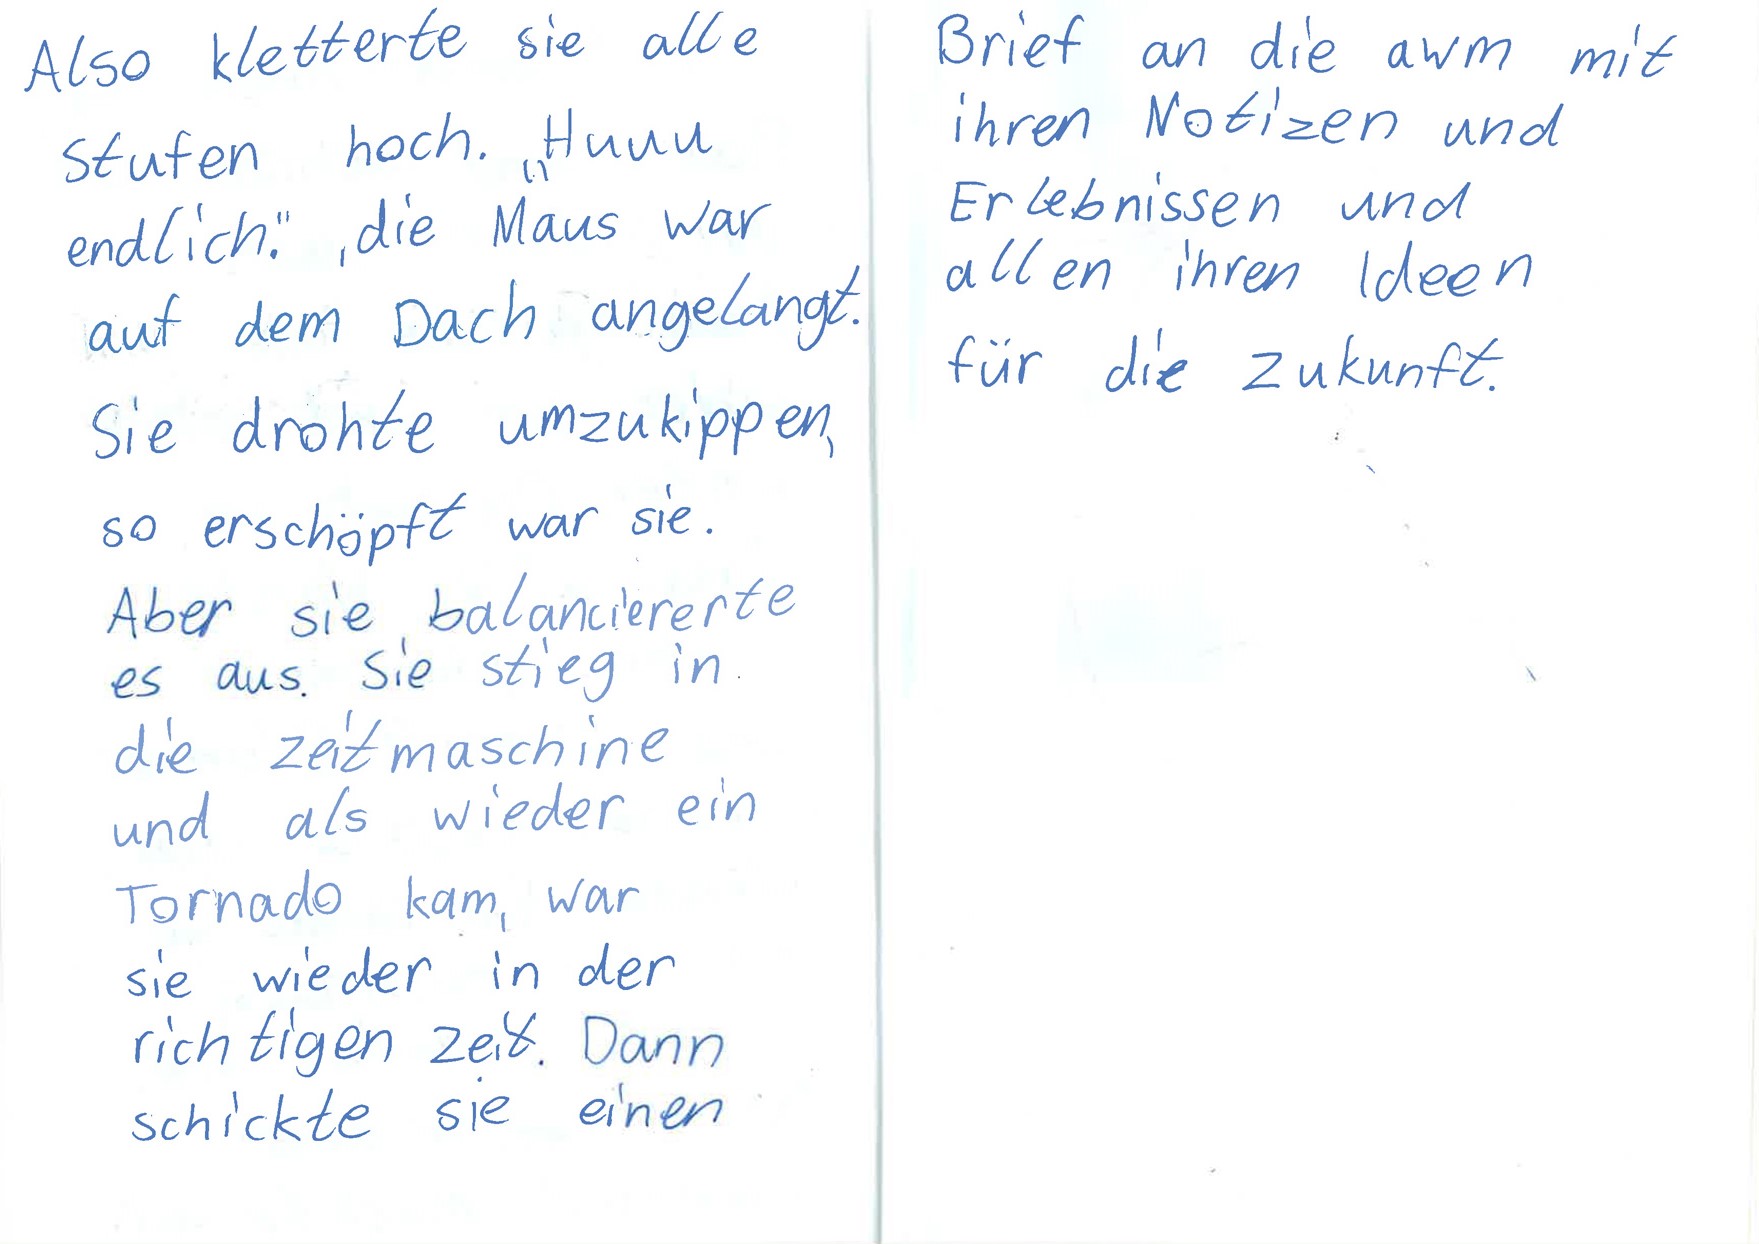 Also kletterte sie alle
Stufen hoch. „Huuu
endlich.", die Maus war
auf dem Dach angelangt.
Sie drohte umzukippen,
so erschöpft war sie.
Aber sie balanciererte
es aus. Sie stieg in
die zeitmaschine
und als wieder ein
Tornado kam, war
sie wieder in der
richtigen zeit. Dann
schickte sie einen
Brief an die awm mit
ihren Notizen und
Erlebnissen und
allen ihren Ideen
für die Zukunft.